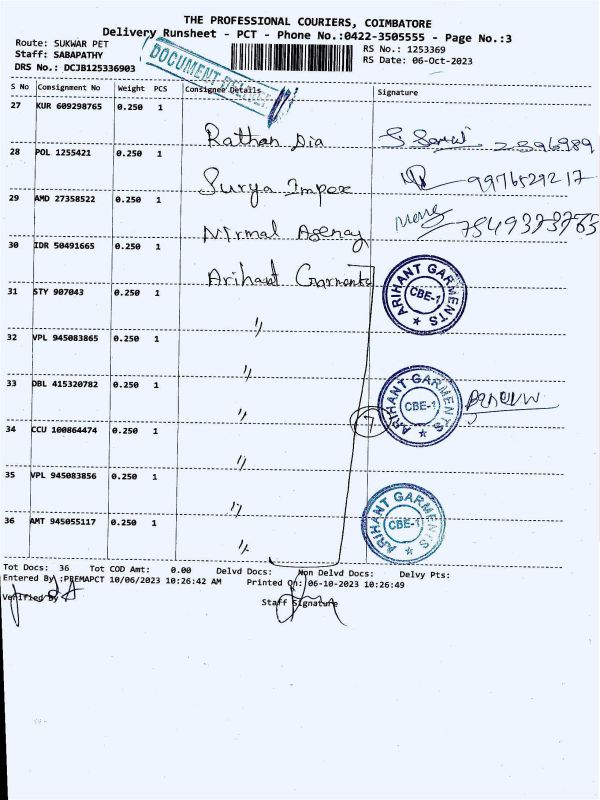 THE PROFESSIONAL COURIERS, COIMBATORE
Delivery Runsheet - PCT - Phone No.:0422-3505555 - Page No.:3
Route: SUKWAR PET
Staff: SABAPATHY
DRS No.: DCJB125336903
RS No.: 1253369
RS Date: 06-Oct-2023
DOCUMENT
S No Consignment No Weight PCS Consignee Details Signature
27 KUR 609298765 0.250 1
Rathan Dia
28 POL 1255421 0.250 1
Surya Impex 9976529217
29 AMD 27358522 0.250 1
Nirmal Agency
30 IDR 50491665 0.250 1
Arihant Garments
ARIHANT GARMENTS CBE-1
31 STY 907043 0.250 1
"
32 VPL 945083865 0.250 1
"
33 DBL 415320782 0.250 1
"
ARIHANT GARMENTS CBE-1
7
34 CCU 100864474 0.250 1
"
35 VPL 945083856 0.250 1
"
36 AMT 945055117 0.250 1
"
ARIHANT GARMENTS CBE-1
Tot Docs: 36 Tot COD Amt: 0.00 Delvd Docs: Non Delvd Docs: Delvy Pts:
Entered By :PREMAPCT 10/06/2023 10:26:42 AM Printed On: 06-10-2023 10:26:49
Verified By
Staff Signature